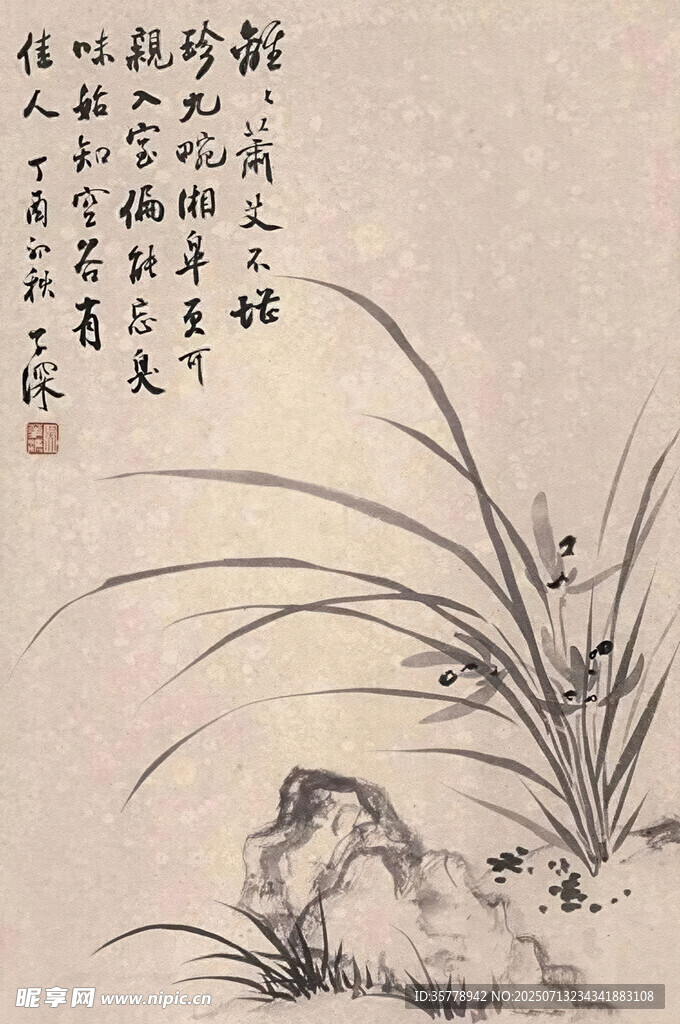 離〻蕭艾不堪
珍九畹湘皋更可
親入室偏能忘臭
味始知空谷有
佳人 丁酉初秋 子深
昵享网 www.nipic.cn
ID:35778942 NO:20250713234341883108